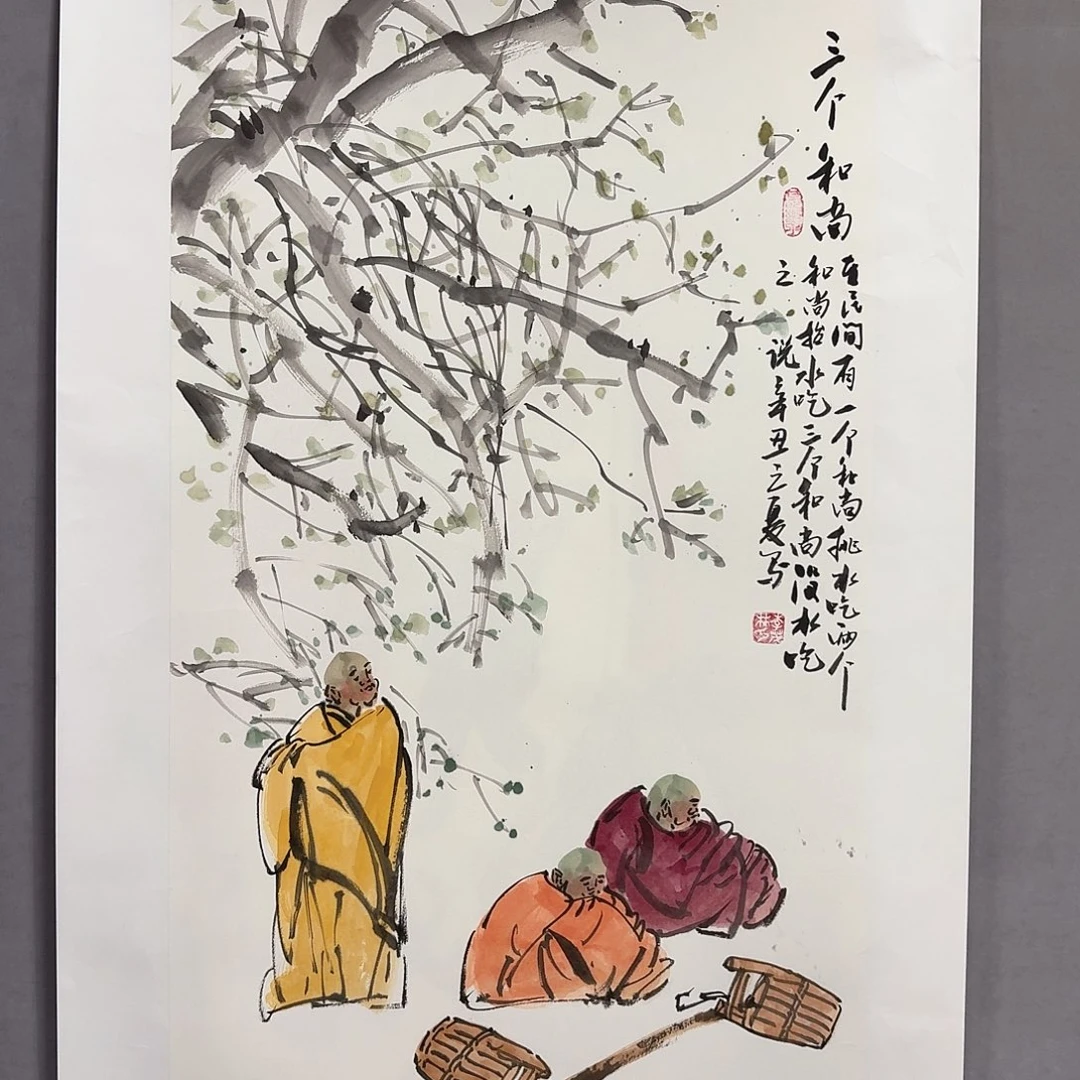 三个和尚
民间有一个和尚挑水吃两个
和尚抬水吃三个和尚没水吃
之说辛丑之夏写